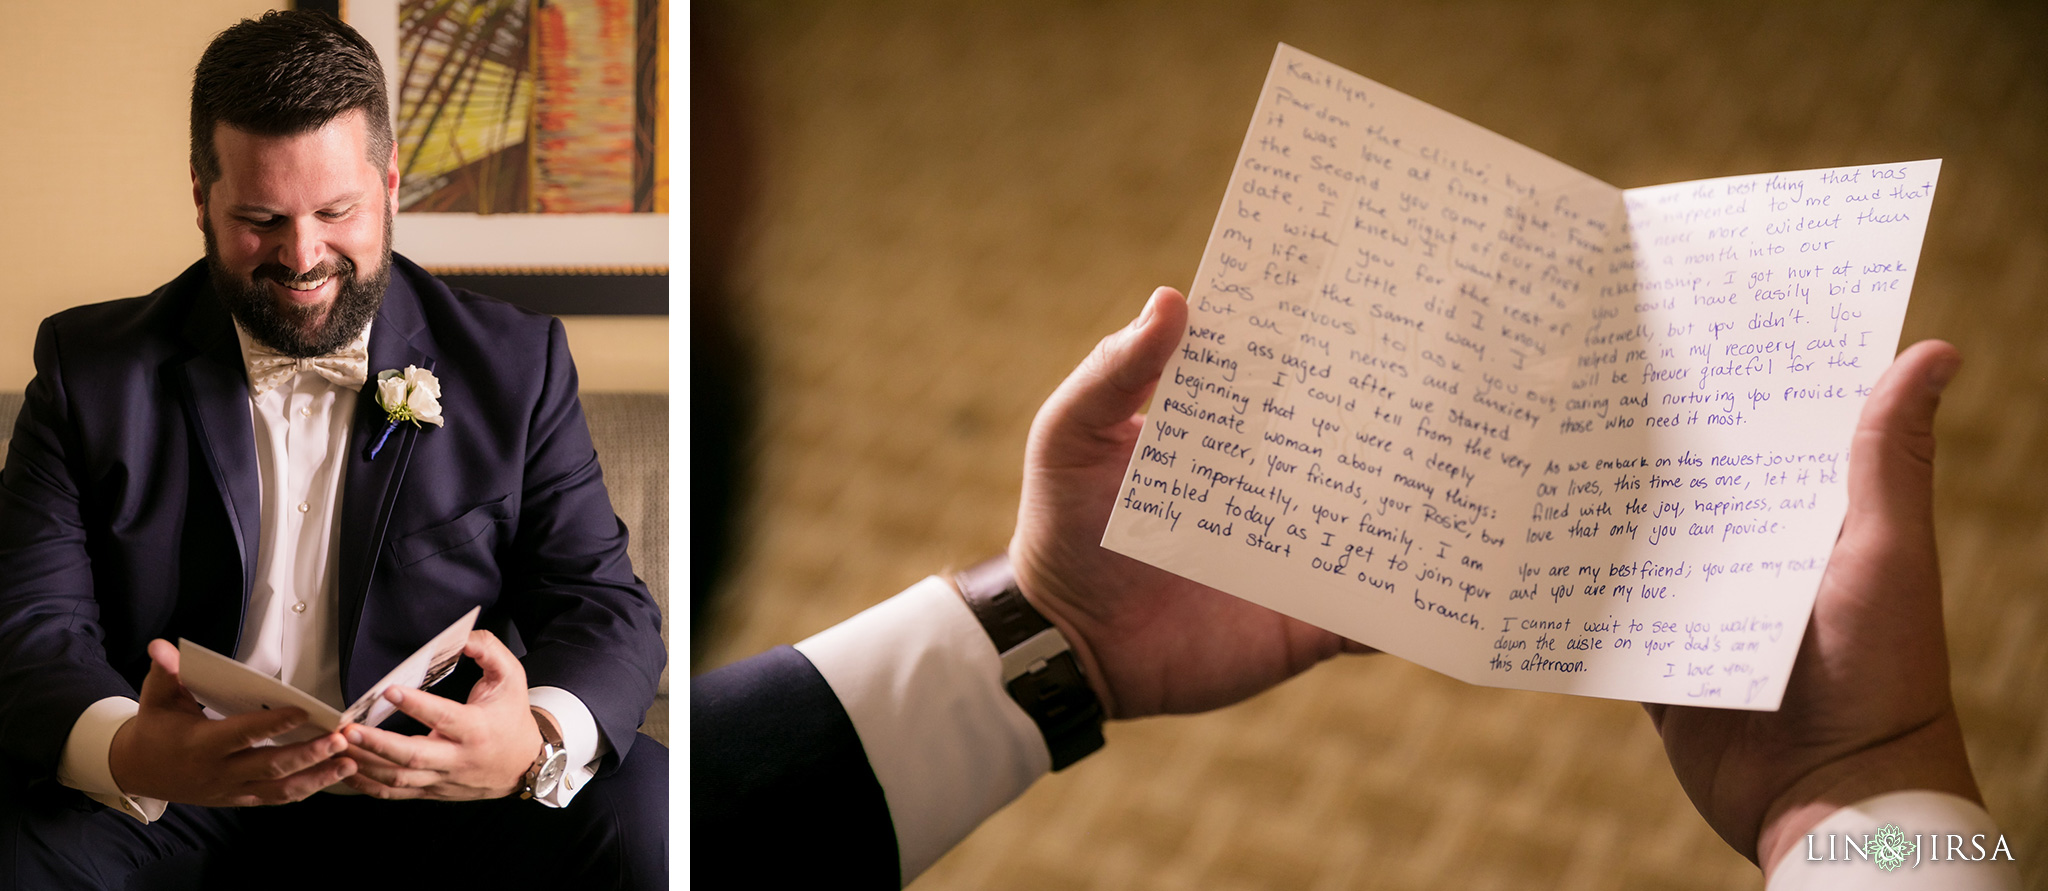 Kaitlyn,
Pardon the cliché, but, for me,
it was love at first sight. From
the second you came around the
corner on the night of our first
date, I knew I wanted to
be with you for the rest of
my life. Little did I know
you felt the same way. I
was nervous to ask you out,
but all my nerves and anxiety
were assuaged after we started
talking. I could tell from the very
beginning that you were a deeply
passionate woman about many things:
your career, your friends, your Rosie, but
most importantly, your family. I am
humbled today as I get to join your
family and start our own branch.
are the best thing that has
ever happened to me and that
was never more evident than
when, a month into our
relationship, I got hurt at work
you could have easily bid me
farewell, but you didn't. You
helped me in my recovery and I
will be forever grateful for the
caring and nurturing you provide to
those who need it most.
As we embark on this newest journey
our lives, this time as one, let it be
filled with the joy, happiness, and
love that only you can provide.
You are my best friend; you are my rock;
and you are my love.
I cannot wait to see you walking
down the aisle on your dad's arm
this afternoon.
I love you,
Jim
LIN & JIRSA